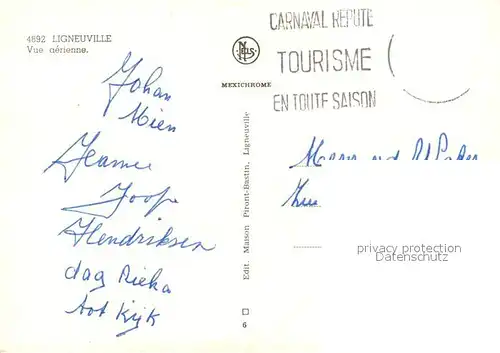 4892 LIGNEUVILLE
Vue aérienne.
CARNAVAL REPUTE
TOURISME
EN TOUTE SAISON
NELS
MEXICHROME
Johan
Mien
Jeanne
Joop
Hendriksen
dag Rieka
tot kijk
Edit. Maison Piront-Bastin, Ligneuville
6
privacy protection
Datenschutz